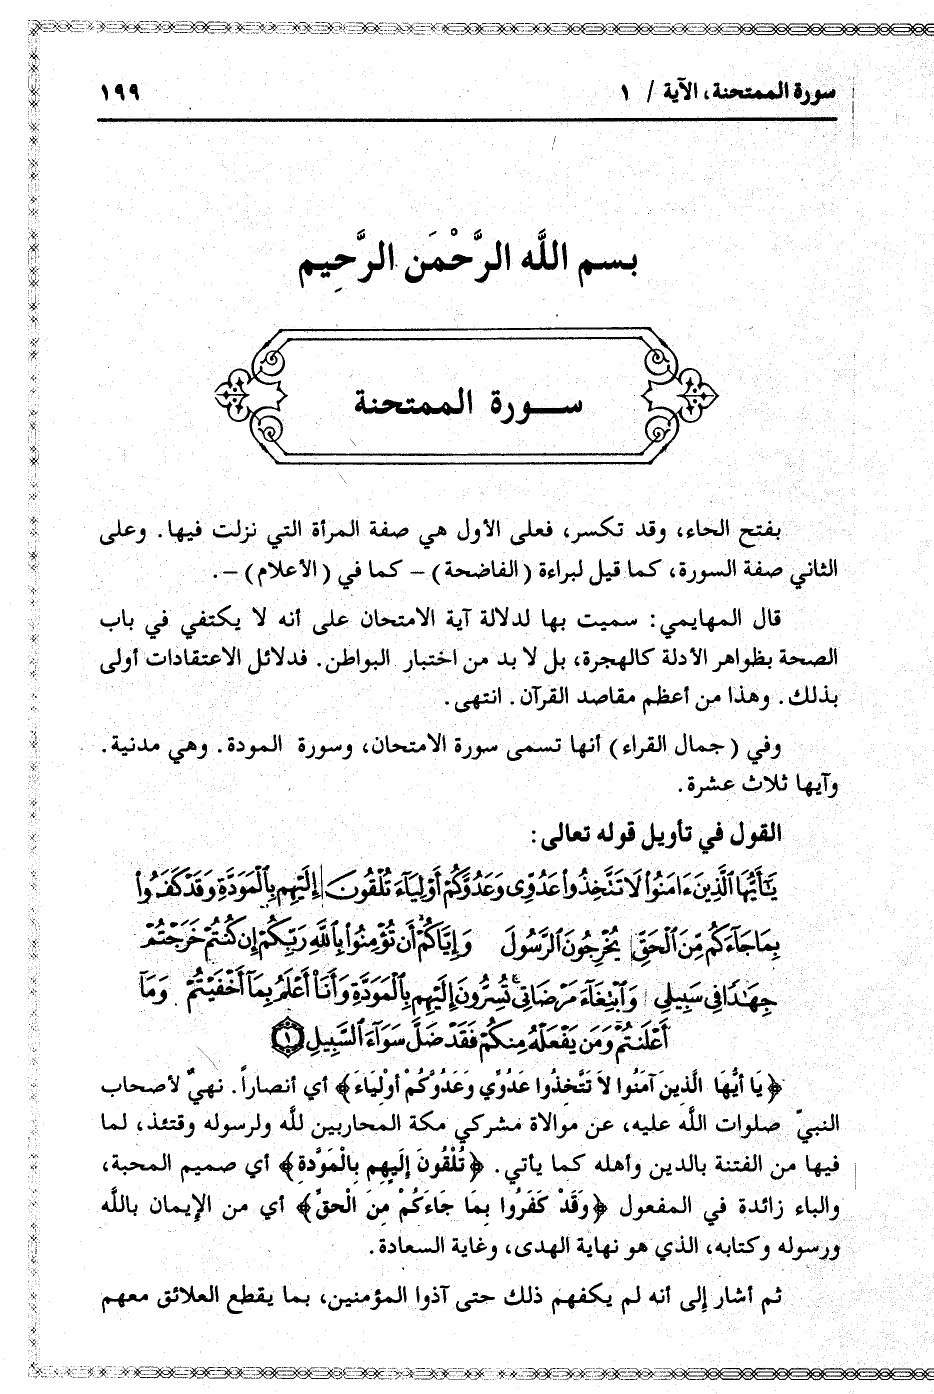 سورة الممتحنة، الآية / ١ ١٩٩
بسم اللَّه الرَّحْمَن الرَّحِيم
ســـورة الممتحنة
بفتح الحاء، وقد تكسر، فعلى الأول هي صفة المرأة التي نزلت فيها. وعلى
الثاني صفة السورة، كما قيل لبراءة (الفاضحة) – كما في (الأعلام) –.
قال المهايمي: سميت بها لدلالة آية الامتحان على أنه لا يكتفي في باب
الصحة بظواهر الأدلة كالهجرة، بل لا بد من اختبار البواطن. فدلائل الاعتقادات أولى
بذلك. وهذا من أعظم مقاصد القرآن. انتهى.
وفي (جمال القراء) أنها تسمى سورة الامتحان، وسورة المودة. وهي مدنية.
وآيها ثلاث عشرة.
القول في تأويل قوله تعالى:
يَٰٓأَيُّهَا ٱلَّذِينَ ءَامَنُوا۟ لَا تَتَّخِذُوا۟ عَدُوِّى وَعَدُوَّكُمْ أَوْلِيَآءَ تُلْقُونَ إِلَيْهِم بِٱلْمَوَدَّةِ وَقَدْ كَفَرُوا۟
بِمَا جَآءَكُم مِّنَ ٱلْحَقِّ يُخْرِجُونَ ٱلرَّسُولَ وَإِيَّاكُمْ أَن تُؤْمِنُوا۟ بِٱللَّهِ رَبِّكُمْ إِن كُنتُمْ خَرَجْتُمْ
جِهَٰدًا فِى سَبِيلِى وَٱبْتِغَآءَ مَرْضَاتِى تُسِرُّونَ إِلَيْهِم بِٱلْمَوَدَّةِ وَأَنَا۠ أَعْلَمُ بِمَآ أَخْفَيْتُمْ وَمَآ
أَعْلَنتُمْ وَمَن يَفْعَلْهُ مِنكُمْ فَقَدْ ضَلَّ سَوَآءَ ٱلسَّبِيلِ ١
﴿يَا أَيُّهَا الَّذِينَ آمَنُوا لاَ تَتَّخِذُوا عَدُوِّي وَعَدُوَّكُمْ أَوْلِيَاءَ﴾ أي أنصاراً. نهيٌ لأصحاب
النبيّ صلوات اللَّه عليه، عن موالاة مشركي مكة المحاربين للَّه ولرسوله وقتئذ، لما
فيها من الفتنة بالدين وأهله كما يأتي. ﴿تُلْقُونَ إِلَيِهِم بِالْمَوَّدة﴾ أي صميم المحبة،
والباء زائدة في المفعول ﴿وَقَدْ كَفَرُوا بِمَا جَاءَكُمْ مِنَ الْحقِّ﴾ أي من الإيمان باللَّه
ورسوله وكتابه، الذي هو نهاية الهدى، وغاية السعادة.
ثم أشار إلى أنه لم يكفهم ذلك حتى آذوا المؤمنين، بما يقطع العلائق معهم